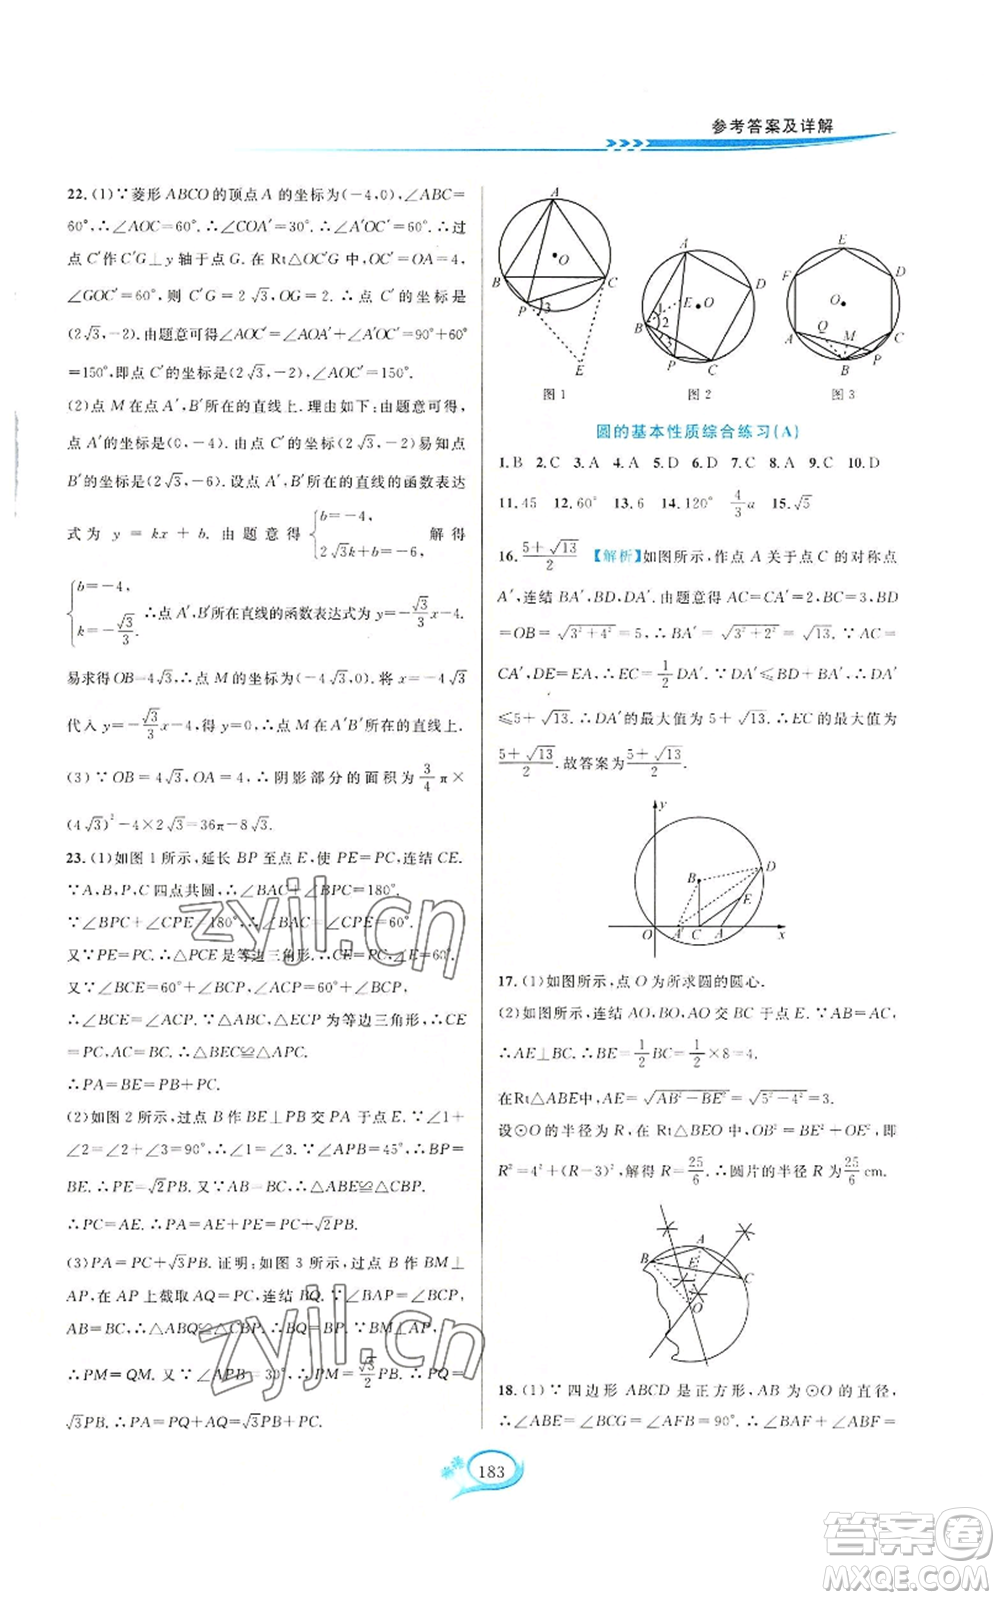 参考答案及详解
22.(1)∵菱形ABCO的顶点A的坐标为(-4,0),∠ABC=
60°,∴∠AOC=60°.∴∠COA′=30°.∴∠A′OC′=60°.∴过
点C′作C′G⊥y轴于点G.在Rt△OC′G中,OC′=OA=4,
∠GOC′=60°,则C′G=2√3,OG=2.∴点C′的坐标是
(2√3,-2).由题意可得∠AOC′=∠AOA′+∠A′OC′=90°+60°
=150°,即点C′的坐标是(2√3,-2),∠AOC′=150°.
(2)点M在点A′,B′所在的直线上.理由如下:由题意可得点A′
(0,-4).由点C′的坐标是(2√3,-2)易知点
B′的坐标是(2√3,-6).设点A′,B′所在的直线的函数表达
式为y=kx+b.由题意得{b=-4, 2√3k+b=-6, 解得
{b=-4, k=-√3/3. ∴点A′,B′所在直线的函数表达式为y=-√3/3x-4.
易求得OB=4√3,∴点M的坐标为(-4√3,0).将x=-4√3
代入y=-√3/3x-4,得y=0.∴点M在A′B′所在的直线上.
(3)∵OB=4√3,OA=4,∴阴影部分的面积为3/4π×
(4√3)²-4×2√3=36π-8√3.
23.(1)如图1所示,延长BP至点E,使PE=PC,连结CE.
∵A、B、P、C四点共圆,∴∠BAC+∠BPC=180°.
∵∠BPC+∠CPE=180°,∴∠BAC=∠CPE=60°.
又∵PE=PC,∴△PCE是等边三角形.∴∠PCE=60°.
又∵∠BCE=60°+∠BCP,∠ACP=60°+∠BCP,
∴∠BCE=∠ACP.∵△ABC,△ECP为等边三角形,∴CE
=PC,AC=BC.∴△BEC≌△APC.
∴PA=BE=PB+PC.
(2)如图2所示,过点B作BE⊥PB交PA于点E.∵∠1+
∠2=∠2+∠3=90°,∴∠1=∠3.∵∠APB=45°,∴BP=
BE.∴PE=√2PB.又∵AB=BC,∴△ABE≌△CBP.
∴PC=AE.∴PA=AE+PE=PC+√2PB.
(3)PA=PC+√3PB.证明:如图3所示,过点B作BM⊥
AP,在AP上截取AQ=PC,连结BQ.∵∠BAP=∠BCP,
AB=BC,∴△ABQ≌△CBP.∴BQ=BP.
∴PM=QM.又∵∠APB=30°,∴PM=√3/2PB.∴PQ=
√3PB.∴PA=PQ+AQ=√3PB+PC.
A
O
B
C
P
3
E
图1
A
D
E
O
1
2
B
3
P
C
图2
E
F
D
O
A
Q
M
C
P
B
图3
圆的基本性质综合练习(A)
1.B 2.C 3.A 4.A 5.D 6.D 7.C 8.A 9.C 10.D
11.45 12.60° 13.6 14.120° 4/3a 15.√5
16.(5+√13)/2 【解析】如图所示,作点A关于点C的对称点
A′,连结BA′,BD,DA′.由题意得AC=CA′=2,BC=3,BD
=OB=√(3²+4²)=5,∴BA′=√(3²+2²)=√13.∵AC=
CA′,DE=EA,∴EC=1/2DA′.∵DA′≤BD+BA′,∴DA′
≤5+√13.∴DA′的最大值为5+√13.∴EC的最大值为
(5+√13)/2.故答案为(5+√13)/2.
y
B
D
E
O
A′
C
A
x
17.(1)如图所示,点O为所求圆的圆心.
(2)如图所示,连结AO,BO,AO交BC于点E.∵AB=AC,
∴AE⊥BC.∴BE=1/2BC=1/2×8=4.
在Rt△ABE中,AE=√(AB²-BE²)=√(5²-4²)=3.
设⊙O的半径为R,在Rt△BEO中,OB²=BE²+OE²,即
R²=4²+(R-3)²,解得R=25/6.∴圆片的半径R为25/6cm.
A
B
E
C
O
18.(1)∵四边形ABCD是正方形,AF为⊙O的直径,
∴∠ABE=∠BCG=∠AFB=90°.∴∠BAF+∠ABF=
183
zyjl.cn
zyjl.cn
答案卷
MXQE.COM